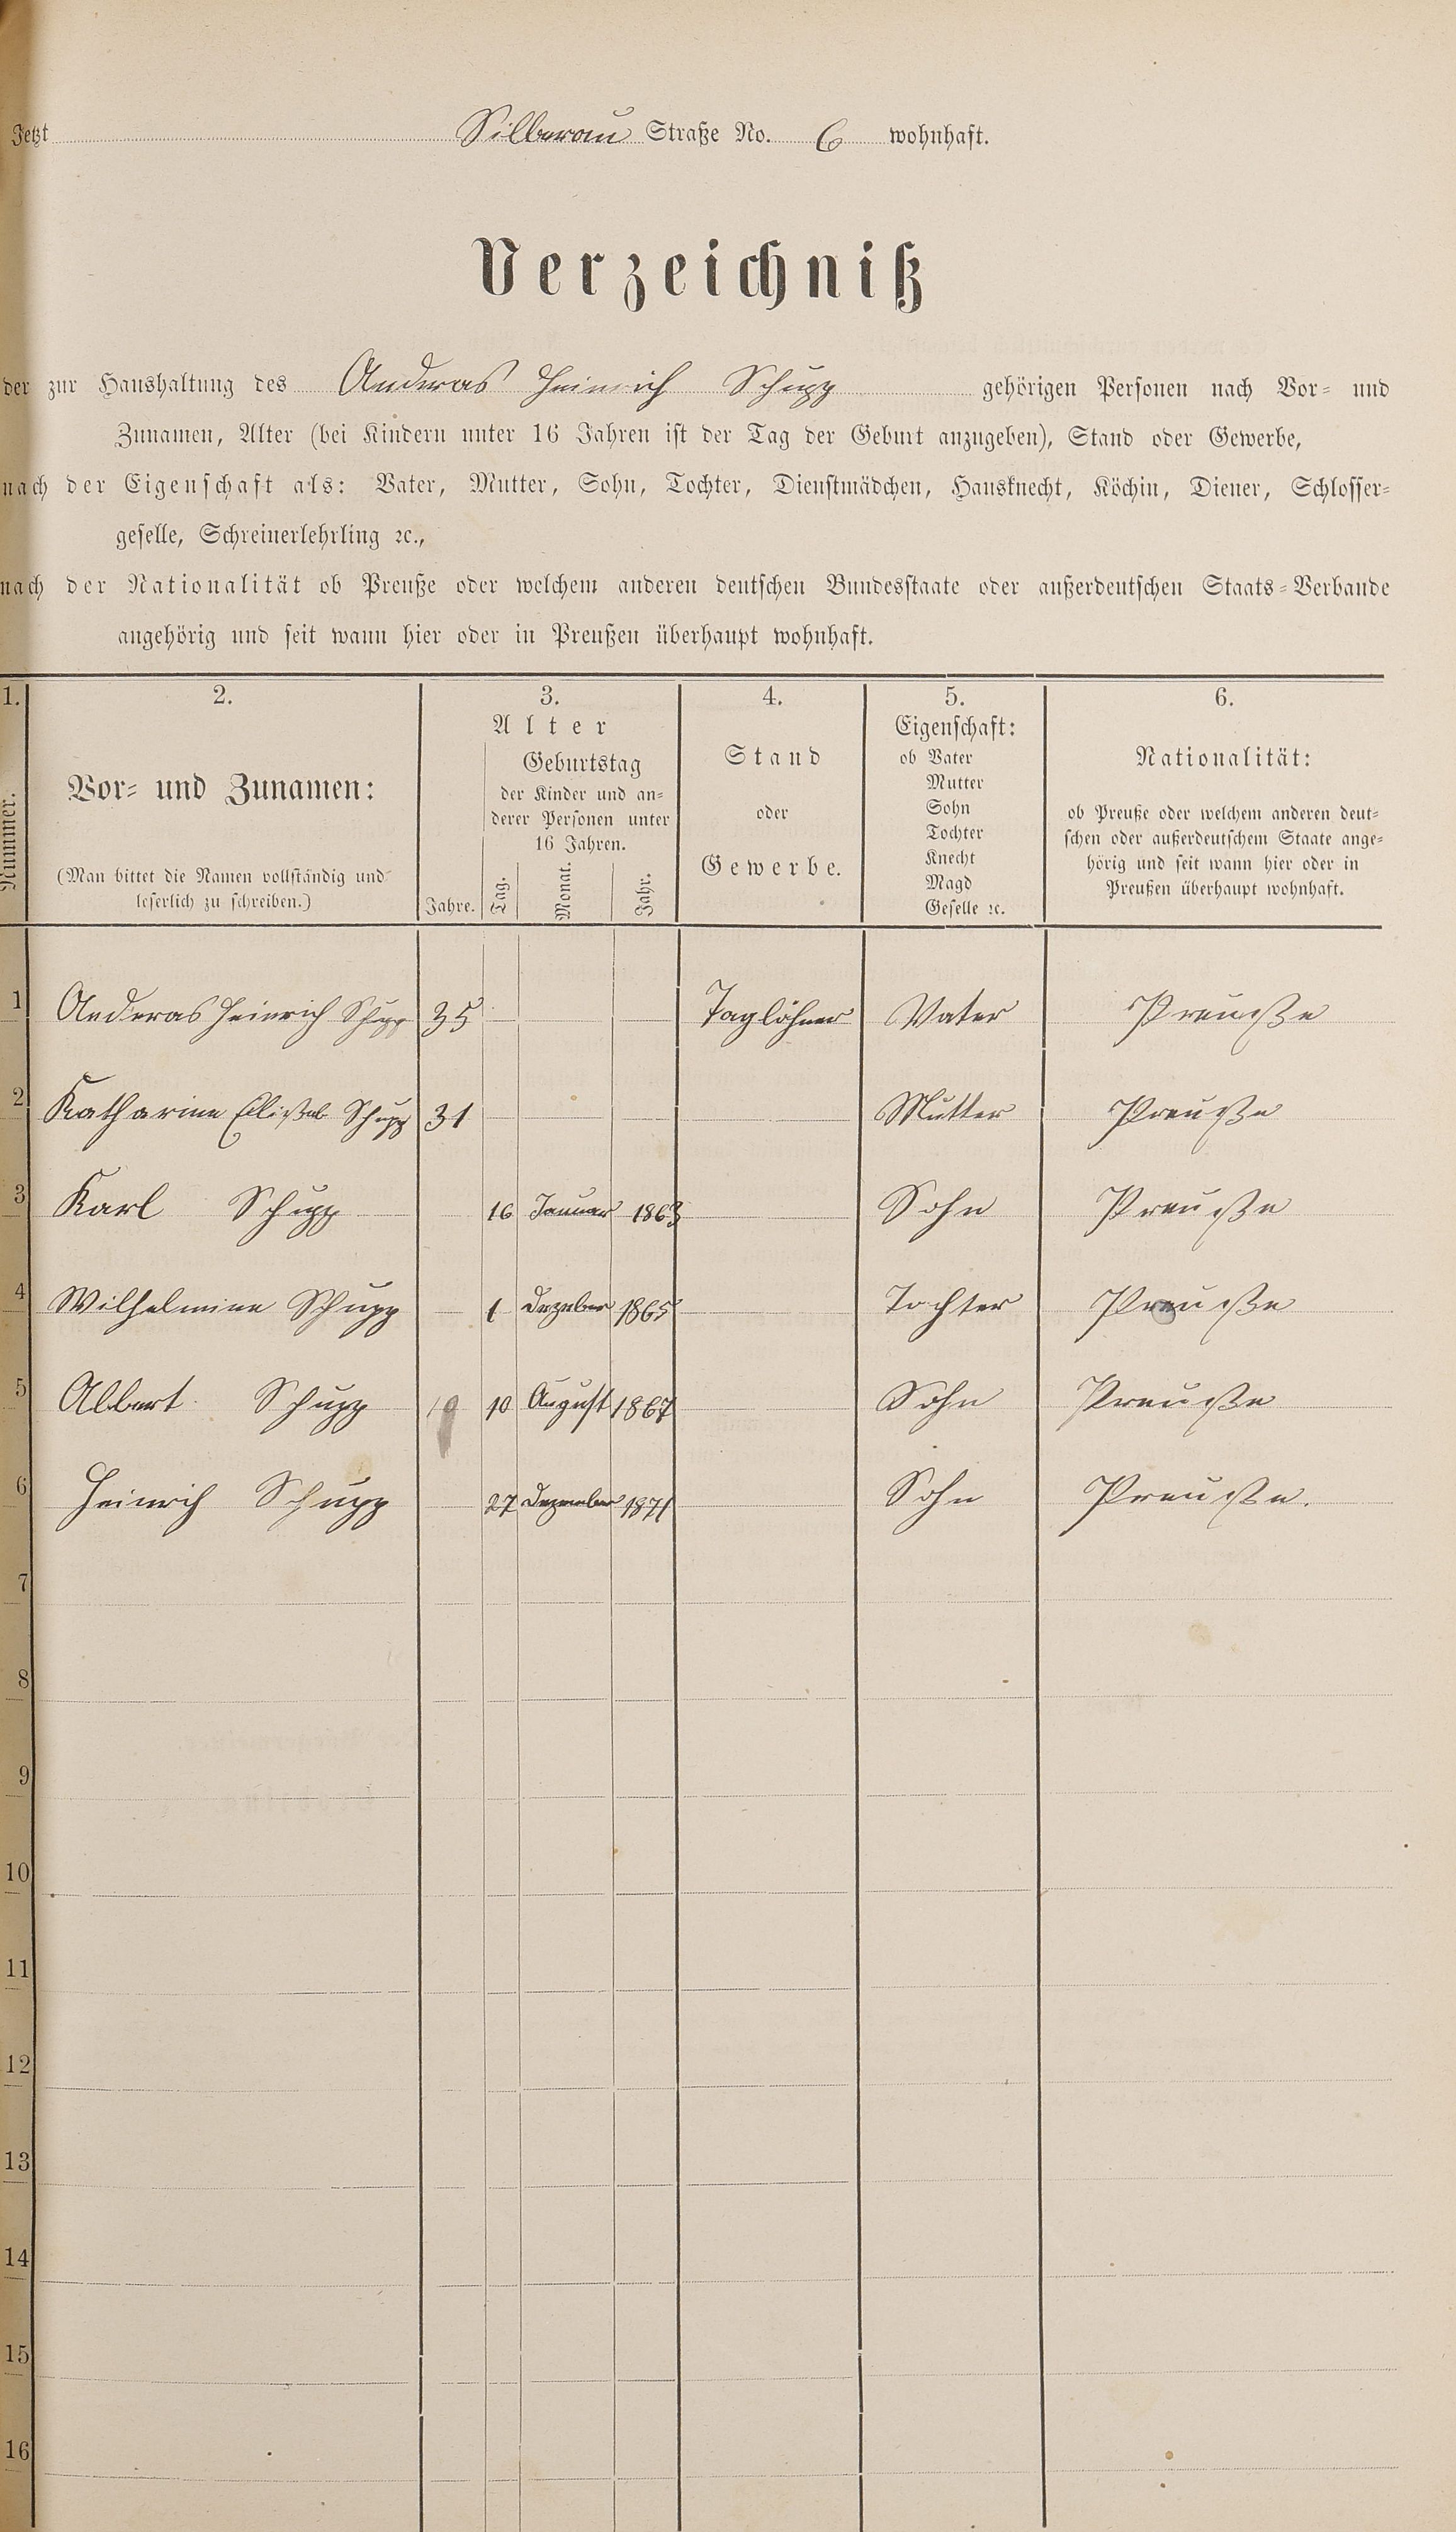 Jetzt Silberau Straße No. 6 wohnhaft.
Verzeichniß
der zur Haushaltung des Anderas Heinrich Schupp gehörigen Personen nach Vor- und
Zunamen, Alter (bei Kindern unter 16 Jahren ist der Tag der Geburt anzugeben), Stand oder Gewerbe,
nach der Eigenschaft als: Vater, Mutter, Sohn, Tochter, Dienstmädchen, Hausknecht, Köchin, Diener, Schlosser-
geselle, Schreinerlehrling ꝛc.,
nach der Nationalität ob Preuße oder welchem anderen deutschen Bundesstaate oder außerdeutschen Staats-Verbande
angehörig und seit wann hier oder in Preußen überhaupt wohnhaft.
1. 2. 3. 4. 5. 6.
Nummer.
Vor- und Zunamen:
(Man bittet die Namen vollständig und
leserlich zu schreiben.)
Alter
Jahre.
Geburtstag
der Kinder und an-
derer Personen unter
16 Jahren.
Tag. Monat. Jahr.
Stand
oder
Gewerbe.
Eigenschaft:
ob Vater
Mutter
Sohn
Tochter
Knecht
Magd
Geselle ꝛc.
Nationalität:
ob Preuße oder welchem anderen deut-
schen oder außerdeutschem Staate ange-
hörig und seit wann hier oder in
Preußen überhaupt wohnhaft.
1 Anderas Heinrich Schupp 35 Taglöhner Vater Preuße
2 Katharine Elißab Schupp 31 Mutter Preuße
3 Karl Schupp 16 Januar 1863 Sohn Preuße
4 Wilhelmine Schupp 1 Dezeber 1865 Tochter Preuße
5 Albert Schupp 10 August 1867 Sohn Preuße
6 Heinrich Schupp 27 Dezember 1871 Sohn Preuße.
7
8
9
10
11
12
13
14
15
16